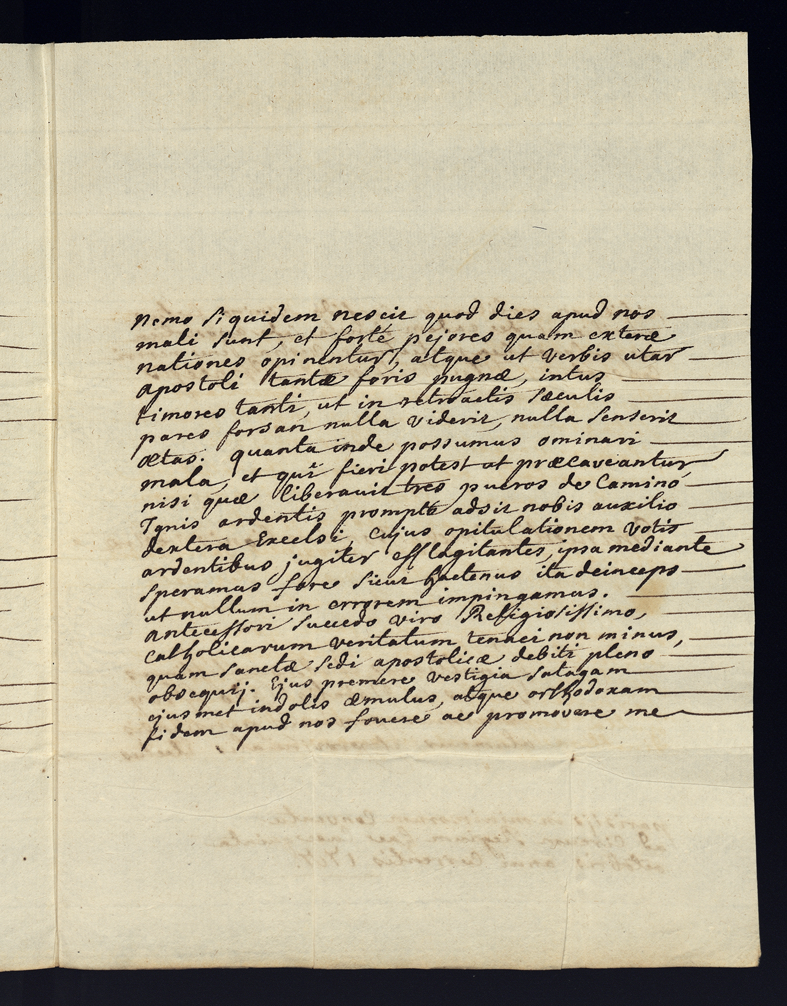 nemo siquidem nescit quod dies apud nos
mali sunt, et forté pejores quam exteræ
nationes opinentur, atque ut verbis utar
apostoli tantæ foris pugnæ, intus
timores tanti, ut in retroactis sæculis
pares forsan nulla viderit, nulla senserit
ætas. quanta inde possumus ominari
mala, et quî fieri potest ut præcaveantur
nisi quæ liberavit tres pueros de Camino
Ignis ardentis promptè adsit nobis auxilio
dextera Excelsi, cujus opitulationem votis
ardentibus jugiter efflagitantes, ipsa mediante
speramus fore sicut hactenus ita deinceps
ut nullum in errorem impingamus.
antecessori succedo viro Religiosissimo,
catholicarum veritatum tenaci non minus,
quam sanctæ sedi apostolicæ debiti pleno
obsequij. Ejus premere vestigia satagam
ejusmet indolis æmulus, atque orthodoxam
fidem apud nos fovere ac promovere me